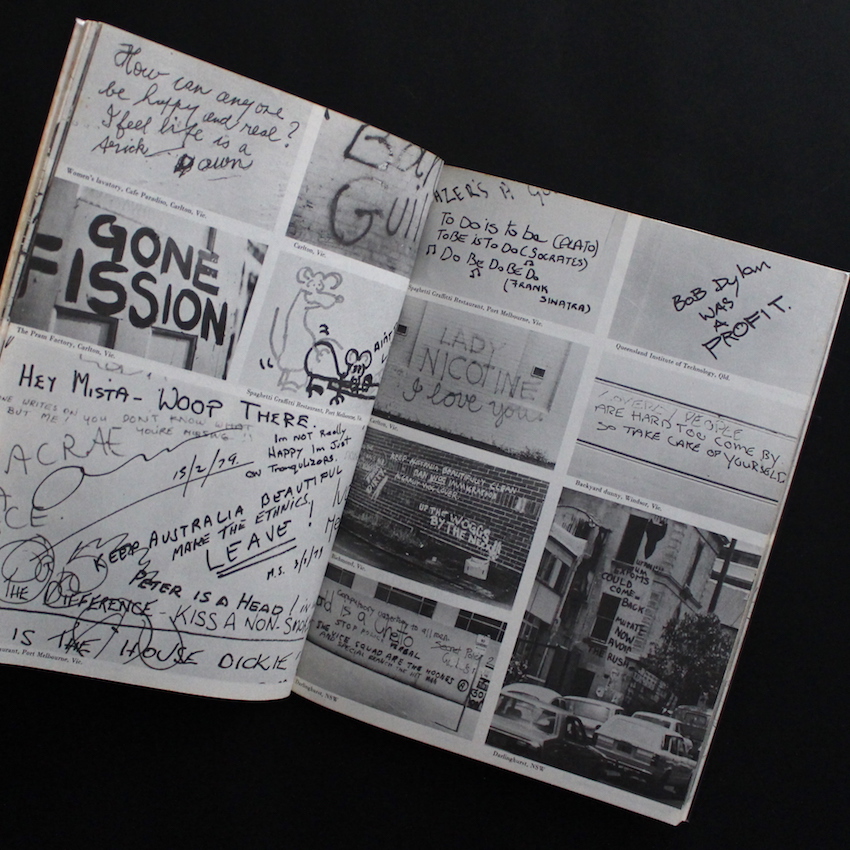 How can anyone
be happy and real?
I feel life is a
Down
Women's lavatory, Cafe Paradiso, Carlton, Vic.
Carlton, Vic.
GONE
FISSION
The Pram Factory, Carlton, Vic.
Spaghetti Graffiti Restaurant, Port Melbourne, Vic.
HEY MISTA- WOOP THERE.
WRITES ON YOU DON'T KNOW WHAT
BUT ME! YOU'RE MISSING!!
ACRAE
Im not Really
HAPPY Im JUST
ON TRANQULIZORS.
15/2/79.
KEEP AUSTRALIA BEAUTIFUL
MAKE THE ETHNICS,
LEAVE!
M.S.
PETER IS A HEAD
THE DIFFERENCE - KISS A NON-SMOK
IS THE HOUSE DICKIE
Port Melbourne, Vic.
TO DO is to be (PLATO)
TO BE IS TO DO (SOCRATES)
DO BE DO BE DO
(FRANK
SINATRA)
Spaghetti Graffiti Restaurant, Port Melbourne, Vic.
BOB Dylan
WAS
A
PROFIT.
Queensland Institute of Technology, Qld.
LADY
NICOTINE
I love you.
Carlton, Vic.
PEOPLE
ARE HARD TOO COME BY
SO TAKE CARE OF YOURSELF
Backyard dunny, Windsor, Vic.
KEEP AUSTRALIA BEAUTIFULLY CLEAN
UP THE WOGGS
BY THE
Richmond, Vic.
is a Ghetto
STOP POLICE VERBAL
VICE SQUAD ARE THE HOONS
Darlinghurst, NSW
EXPORTS
COULD
COME
BACK
MUTATE
NOW
AVOID
THE RUSH
Darlinghurst, NSW